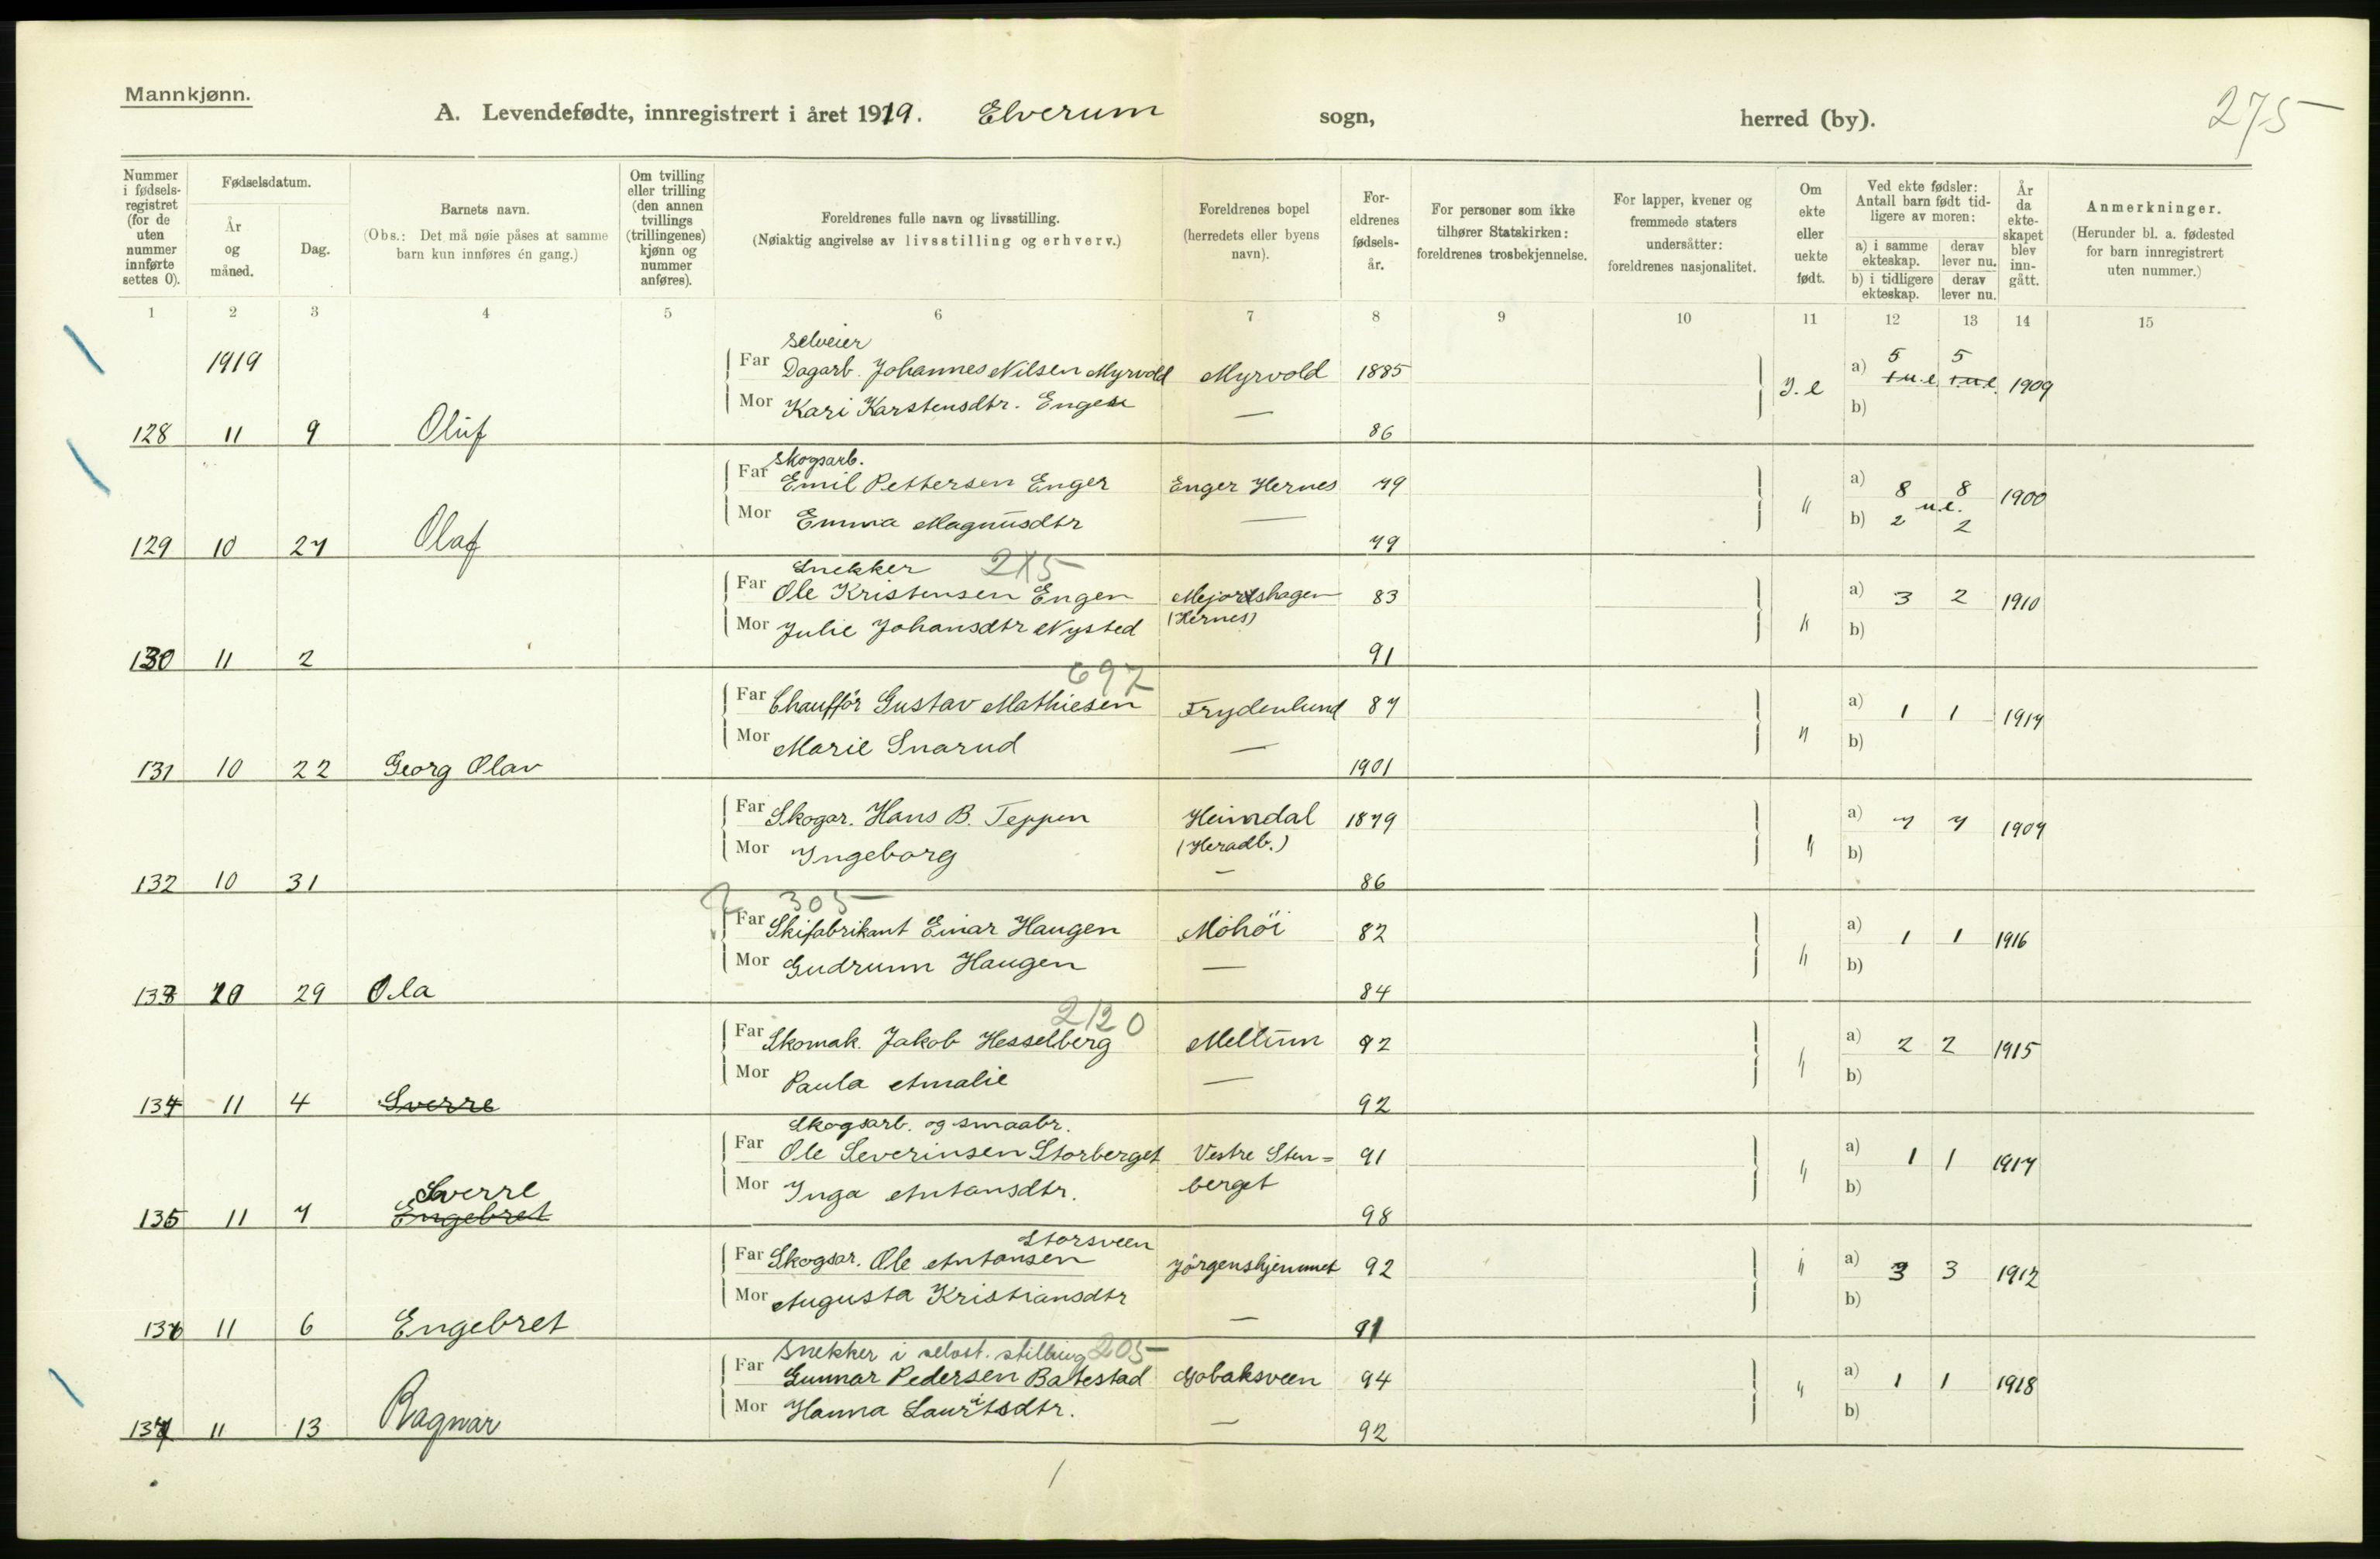 Mannkjønn.
275
A. Levendefødte, innregistrert i året 1919. Elverum sogn, herred (by).
Nummer i fødsels-registret (for de uten nummer innførte settes 0).
Fødselsdatum.
År og måned.
Dag.
Barnets navn.
(Obs.: Det må nøie påses at samme barn kun innføres én gang.)
Om tvilling eller trilling (den annen tvillings (trillingenes) kjønn og nummer anføres).
Foreldrenes fulle navn og livsstilling.
(Nøiaktig angivelse av livsstilling og erhverv.)
Foreldrenes bopel (herredets eller byens navn).
For-eldrenes fødsels-år.
For personer som ikke tilhører Statskirken: foreldrenes trosbekjennelse.
For lapper, kvener og fremmede staters undersåtter: foreldrenes nasjonalitet.
Om ekte eller uekte født.
Ved ekte fødsler: Antall barn født tid-ligere av moren:
a) i samme ekteskap. derav lever nu.
b) i tidligere ekteskap. derav lever nu.
År da ekte-skapet blev inn-gått.
Anmerkninger.
(Herunder bl. a. fødested for barn innregistrert uten nummer.)
1 2 3 4 5 6 7 8 9 10 11 12 13 14 15
1919
selveier
Far Dagarb. Johannes Nilsen Myrvold Myrvold 1885 a) 5 5
J. e 1 u.e 1 u.e. 1909
Mor Kari Karstensdtr. Engen — b)
128 11 9 Oluf 86
Skogsarb.
Far Emil Pettersen Enger Enger Hernes 79 a) 8 8 1900
u.e.
Mor Emma Magnusdtr — " b) 2 2
129 10 27 Olaf 79
Snekker 2X5
Far Ole Kristensen Engen Mejordshagen 83 a) 3 2 1910
Mor Julie Johansdtr Nysted (Hernes) " b)
130 11 2 91
697
Far Chauffør Gustav Mathiesen Frydenlund 87 a) 1 1 1917
Mor Marie Snarud — " b)
131 10 22 Georg Olav 1901
Far Skogar. Hans B. Teppen Heimdal 1879 a) 7 7 1907
Mor Ingeborg (Heradb.) " b)
132 10 31 — 86
305
Far Skifabrikant Einar Haugen Mohöi 82 a) 1 1 1916
Mor Gudrunn Haugen — " b)
133 10 29 Ola 84
2120
Far Skomak. Jakob Hesselberg Meltunn 92 a) 2 2 1915
Mor Paula Amalie — " b)
134 11 4 Sverre 92
Skogsarb. og smaabr.
Far Ole Severinsen Storberget Vestre Sten= 91 a) 1 1 1917
Mor Inga Antonsdtr. berget " b)
Sverre
135 11 7 Engebret 98
Storsveen
Far Skogsar. Ole Antonsen Jörgenshjemmet 92 " a) 3 3 1912
Mor Augusta Kristiansdtr b)
136 11 6 Engebret — 91
Snekker i selvst. stilling 205
Far Gunnar Pedersen Baltestad Gobaksveen 94 a) 1 1 1918
Mor Hanna Lauritsdtr. " b)
137 11 13 Ragnar — 92